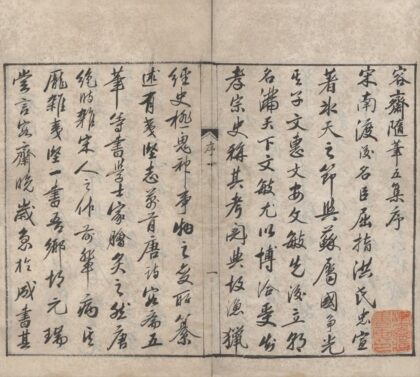 容齋隨筆五集序
宋南渡後名臣屈指洪氏忠宣
著冰天之節與蘇屬國爭光
其子文惠文安文敏先後立朝
名滿天下文敏尤以博洽受知
孝宗史稱其考閱典故漁獵
序
一
經史極鬼神事物之變所纂
述有夷堅志萬首唐詩容齋五
筆等書學士家膾炙之然唐
絕時雜宋人之作前輩病其
龐雜夷堅一書吾鄉胡元瑞
嘗言容齋晚歲急於成書其